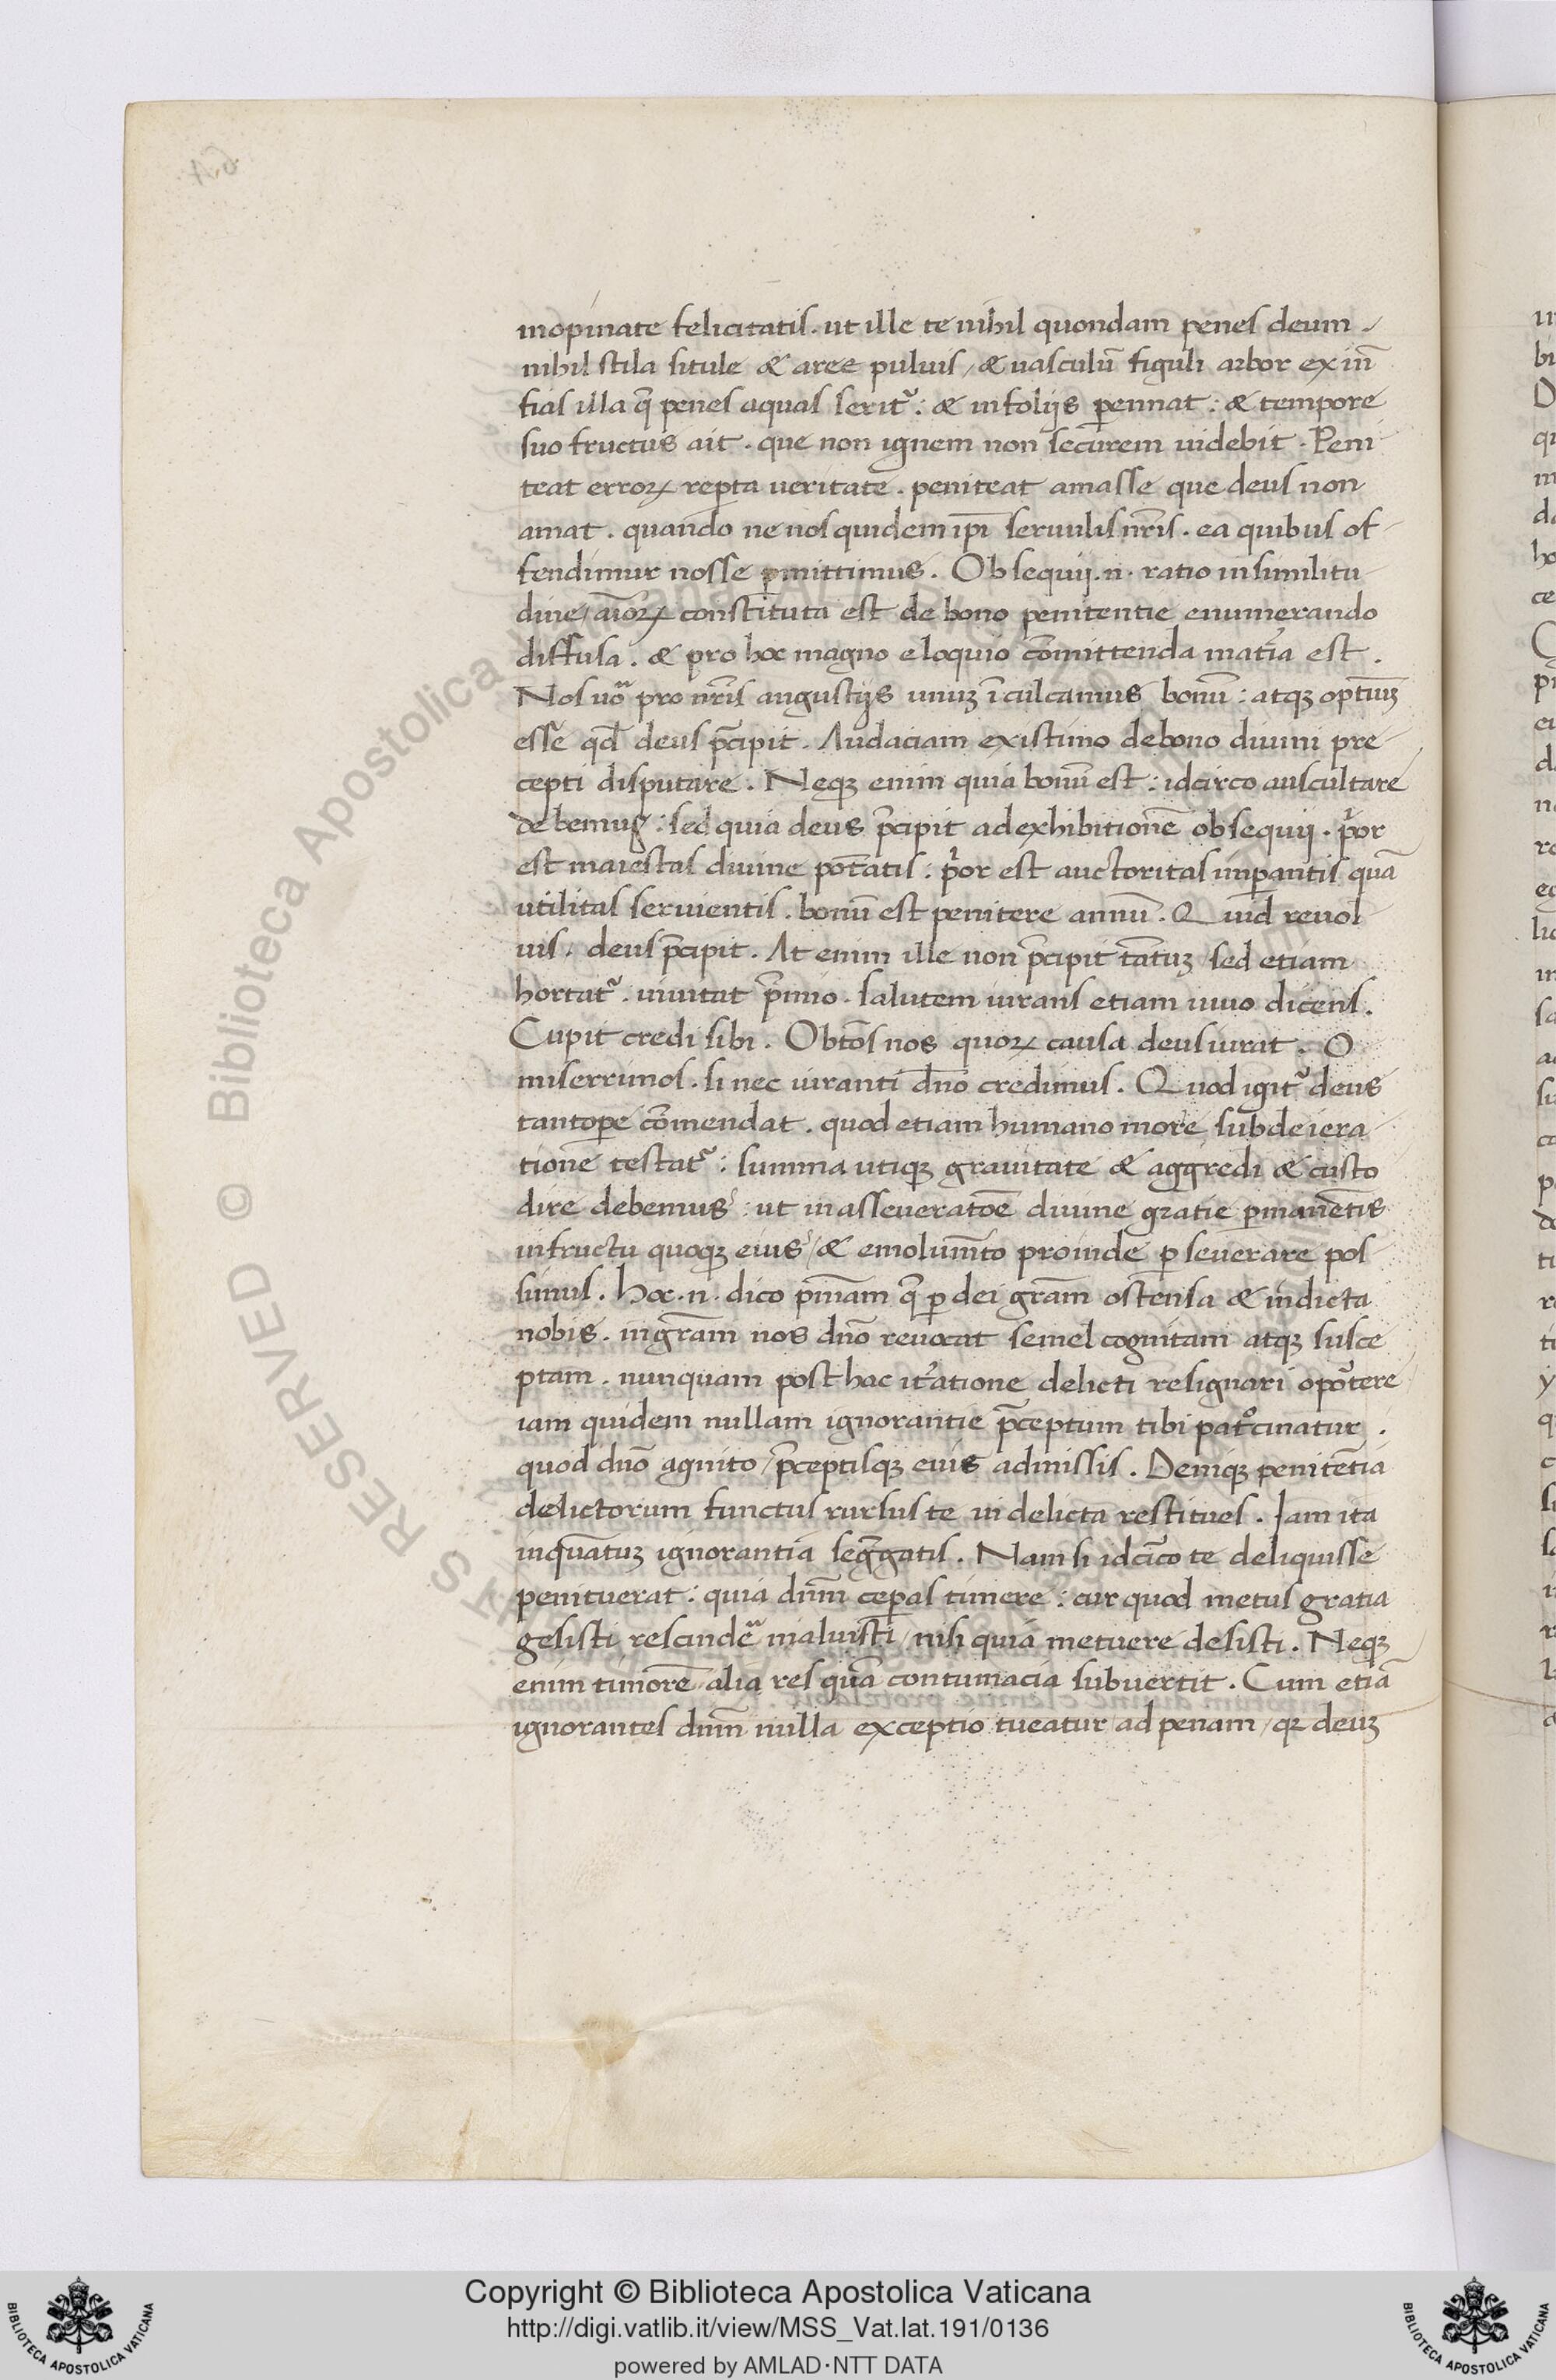 inopinate felicitatis . ut ille te nihil quondam penes deum .
nihil stila situle & aree puluis / & uasculū figuli arbor ex in̄
fias illa q̄ penes aquas serit᷑ : & in folijs ꝑennat : & tempore
suo fructus ait . que non ignem non securem uidebit . Peni
teat erroꝝ reꝑta ueritate . peniteat amasse que deus non
amat . quando ne nos quidem ip̄i seruulis nr̄is . ea quibus of
fendimur nosse ꝑmittimus . Obsequij .n. ratio in similitu
dine / aīorꝝ constituta est de bono penitentie enumerando
diffusa . & pro hoc magno eloquio cōmittenda mat̄ia est .
Nos uō pro nr̄is angustijs unuꝫ īculcamus bonū : atqꝫ optīuꝫ
esse qd̄ deus p̄cipit . Audaciam existimo de bono diuini pre
cepti disputare . Neqꝫ enim quia bonū est : idcirco auscultare
debemus : sed quia deus p̄cipit ad exhibitionē obsequij . p̄or
est maiestas diuine potātis : p̄or est auctoritas imꝑantis quā
utilitas seruientis . bonū est penitere annū . Quid reuol
uis . deus p̄cipit . At enim ille non p̄cipit tātuꝫ sed etiam
hortat᷑ . inuitat p̄mio . salutem iurans etiam uiuo dicens .
Cupit credi sibi . O btōs nos quoꝝ causa deus iurat . O
miserrimos . si nec iuranti dn̄o credimus . Quod igit᷑ deus
tantoꝑe cōmendat . quod etiam humano more sub deiera
tione testat᷑ : summa utiqꝫ grauitate & aggredi & custo
dire debemus : ut in asseueratōe diuine gratie ꝑmanētis
in fructu quoqꝫ eius / & emolumt̄o proinde ꝑseuerare pos
simus . Hoc .n. dico pn̄iam q̄ ꝑ dei grām ostensa & indicta
nobis . in grām nos dn̄o reuocat semel cognitam atqꝫ susce
ptam . nunquam posthac it᷑atione delicti resignari opōtere
iam quidem nullam ignorantie p̄ceptum tibi patͦcinatur .
quod dn̄o agnito / p̄ceptisqꝫ eius admissis . Deniqꝫ penitētia
delictorum functus rursus te in delicta restitues . Iam ita
inquātuꝫ ignorantia seg̈gatis . Nam si idcīco te deliquisse
penituerat : quia dn̄m ceꝑas timere : cur quod metus gratia
gesisti rescindē maluisti / nisi quia metuere desisti . Neqꝫ
enim timorē alia res quā contumacia subuertit . Cum etiā
ignorantes dn̄m nulla exceptio tueatur ad penam / qꝛ deuꝫ
Copyright © Biblioteca Apostolica Vaticana
http://digi.vatlib.it/view/MSS_Vat.lat.191/0136
powered by AMLAD·NTT DATA